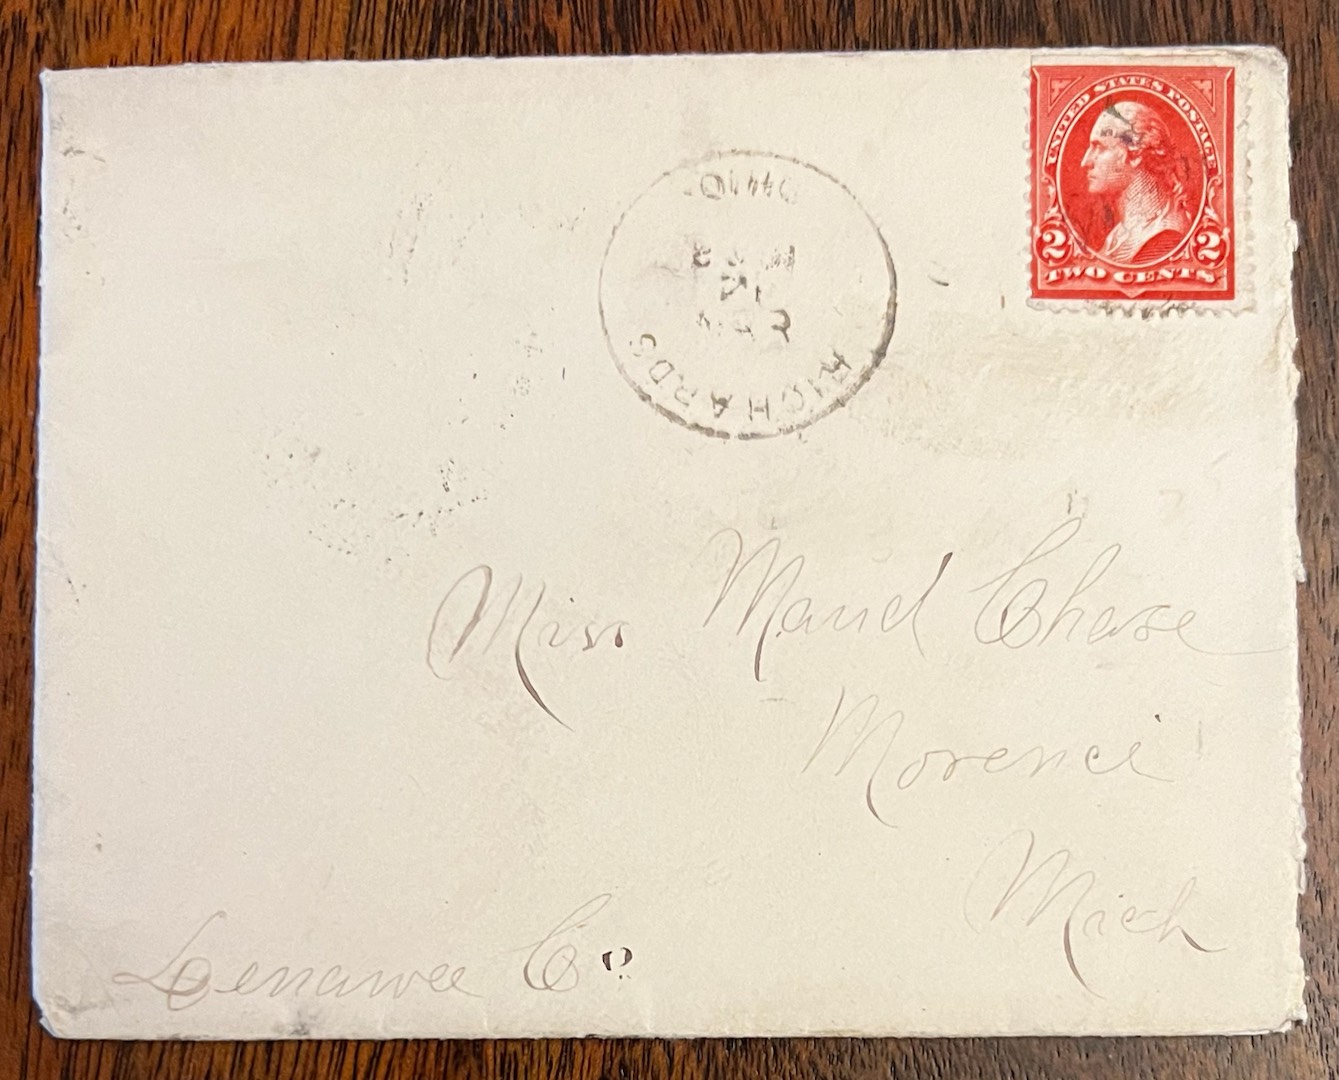 UNITED STATES POSTAGE
2 2
TWO CENTS
RICHARDS
OHIO.
Miss Maud Chase
Morenci
Mich
Lenawee Co